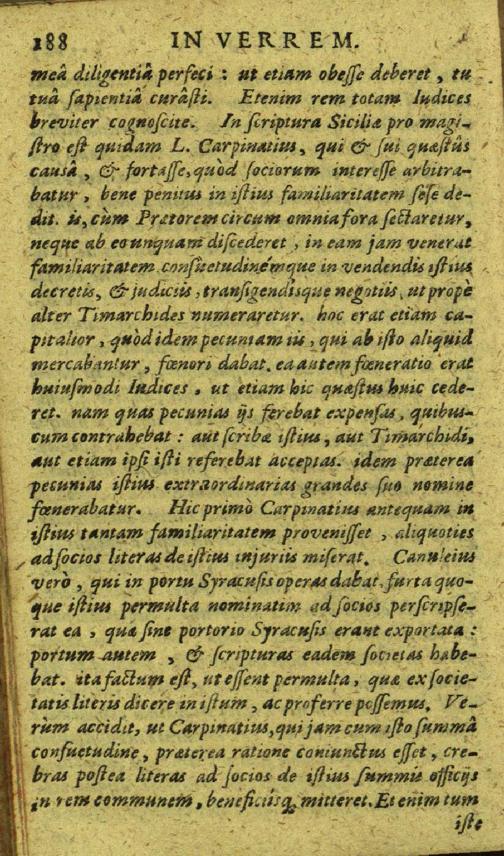 188 IN VERREM.
meâ diligentiâ perfeci : ut etiam obesse deberet , tu
tuâ sapientiâ curâsti. Etenim rem totam Iudices
breviter cognoscite. In scriptura Siciliæ pro magi-
stro est quidam L. Carpinatius, qui & sui quæstûs
causâ , & fortasse, quòd sociorum interesse arbitra-
batur , bene penitus in istius familiaritatem sese de-
dit. is, cùm Prætorem circum omnia fora sectaretur,
neque ab eo unquam discederet , in eam jam venerat
familiaritatem consuetudinémque in vendendis istius
decretis, & judiciis , transigendisque negotiis, ut propè
alter Timarchides numeraretur. hoc erat etiam ca-
pitalior , quòd idem pecuniam iis , qui ab isto aliquid
mercabantur , fœnori dabat. ea autem fœneratio erat
huiusmodi Iudices , ut etiam hic quæstus huic cede-
ret. nam quas pecunias ijs ferebat expensas, quibus-
cum contrahebat : aut scribæ istius, aut Timarchidi,
aut etiam ipsi isti referebat acceptas. idem præterea
pecunias istius extraordinarias grandes suo nomine
fœnerabatur. Hic primò Carpinatius antequam in
istius tantam familiaritatem provenisset , aliquoties
ad socios literas de istius injuriis miserat. Canuleius
verò , qui in portu Syracusis operas dabat, furta quo-
que istius permulta nominatim ad socios perscripse-
rat ea , quæ sine portorio Syracusis erant exportata :
portum autem , & scripturas eadem societas habe-
bat. ita factum est, ut essent permulta, quæ ex socie-
tatis literis dicere in istum , ac proferre possemus. Ve-
rùm accidit, ut Carpinatius, qui jam cum isto summâ
consuetudine, præterea ratione coniunctus esset , cre-
bras postea literas ad socios de istius summis officijs
in rem communem, beneficiisq; mitteret. Etenim tum
iste